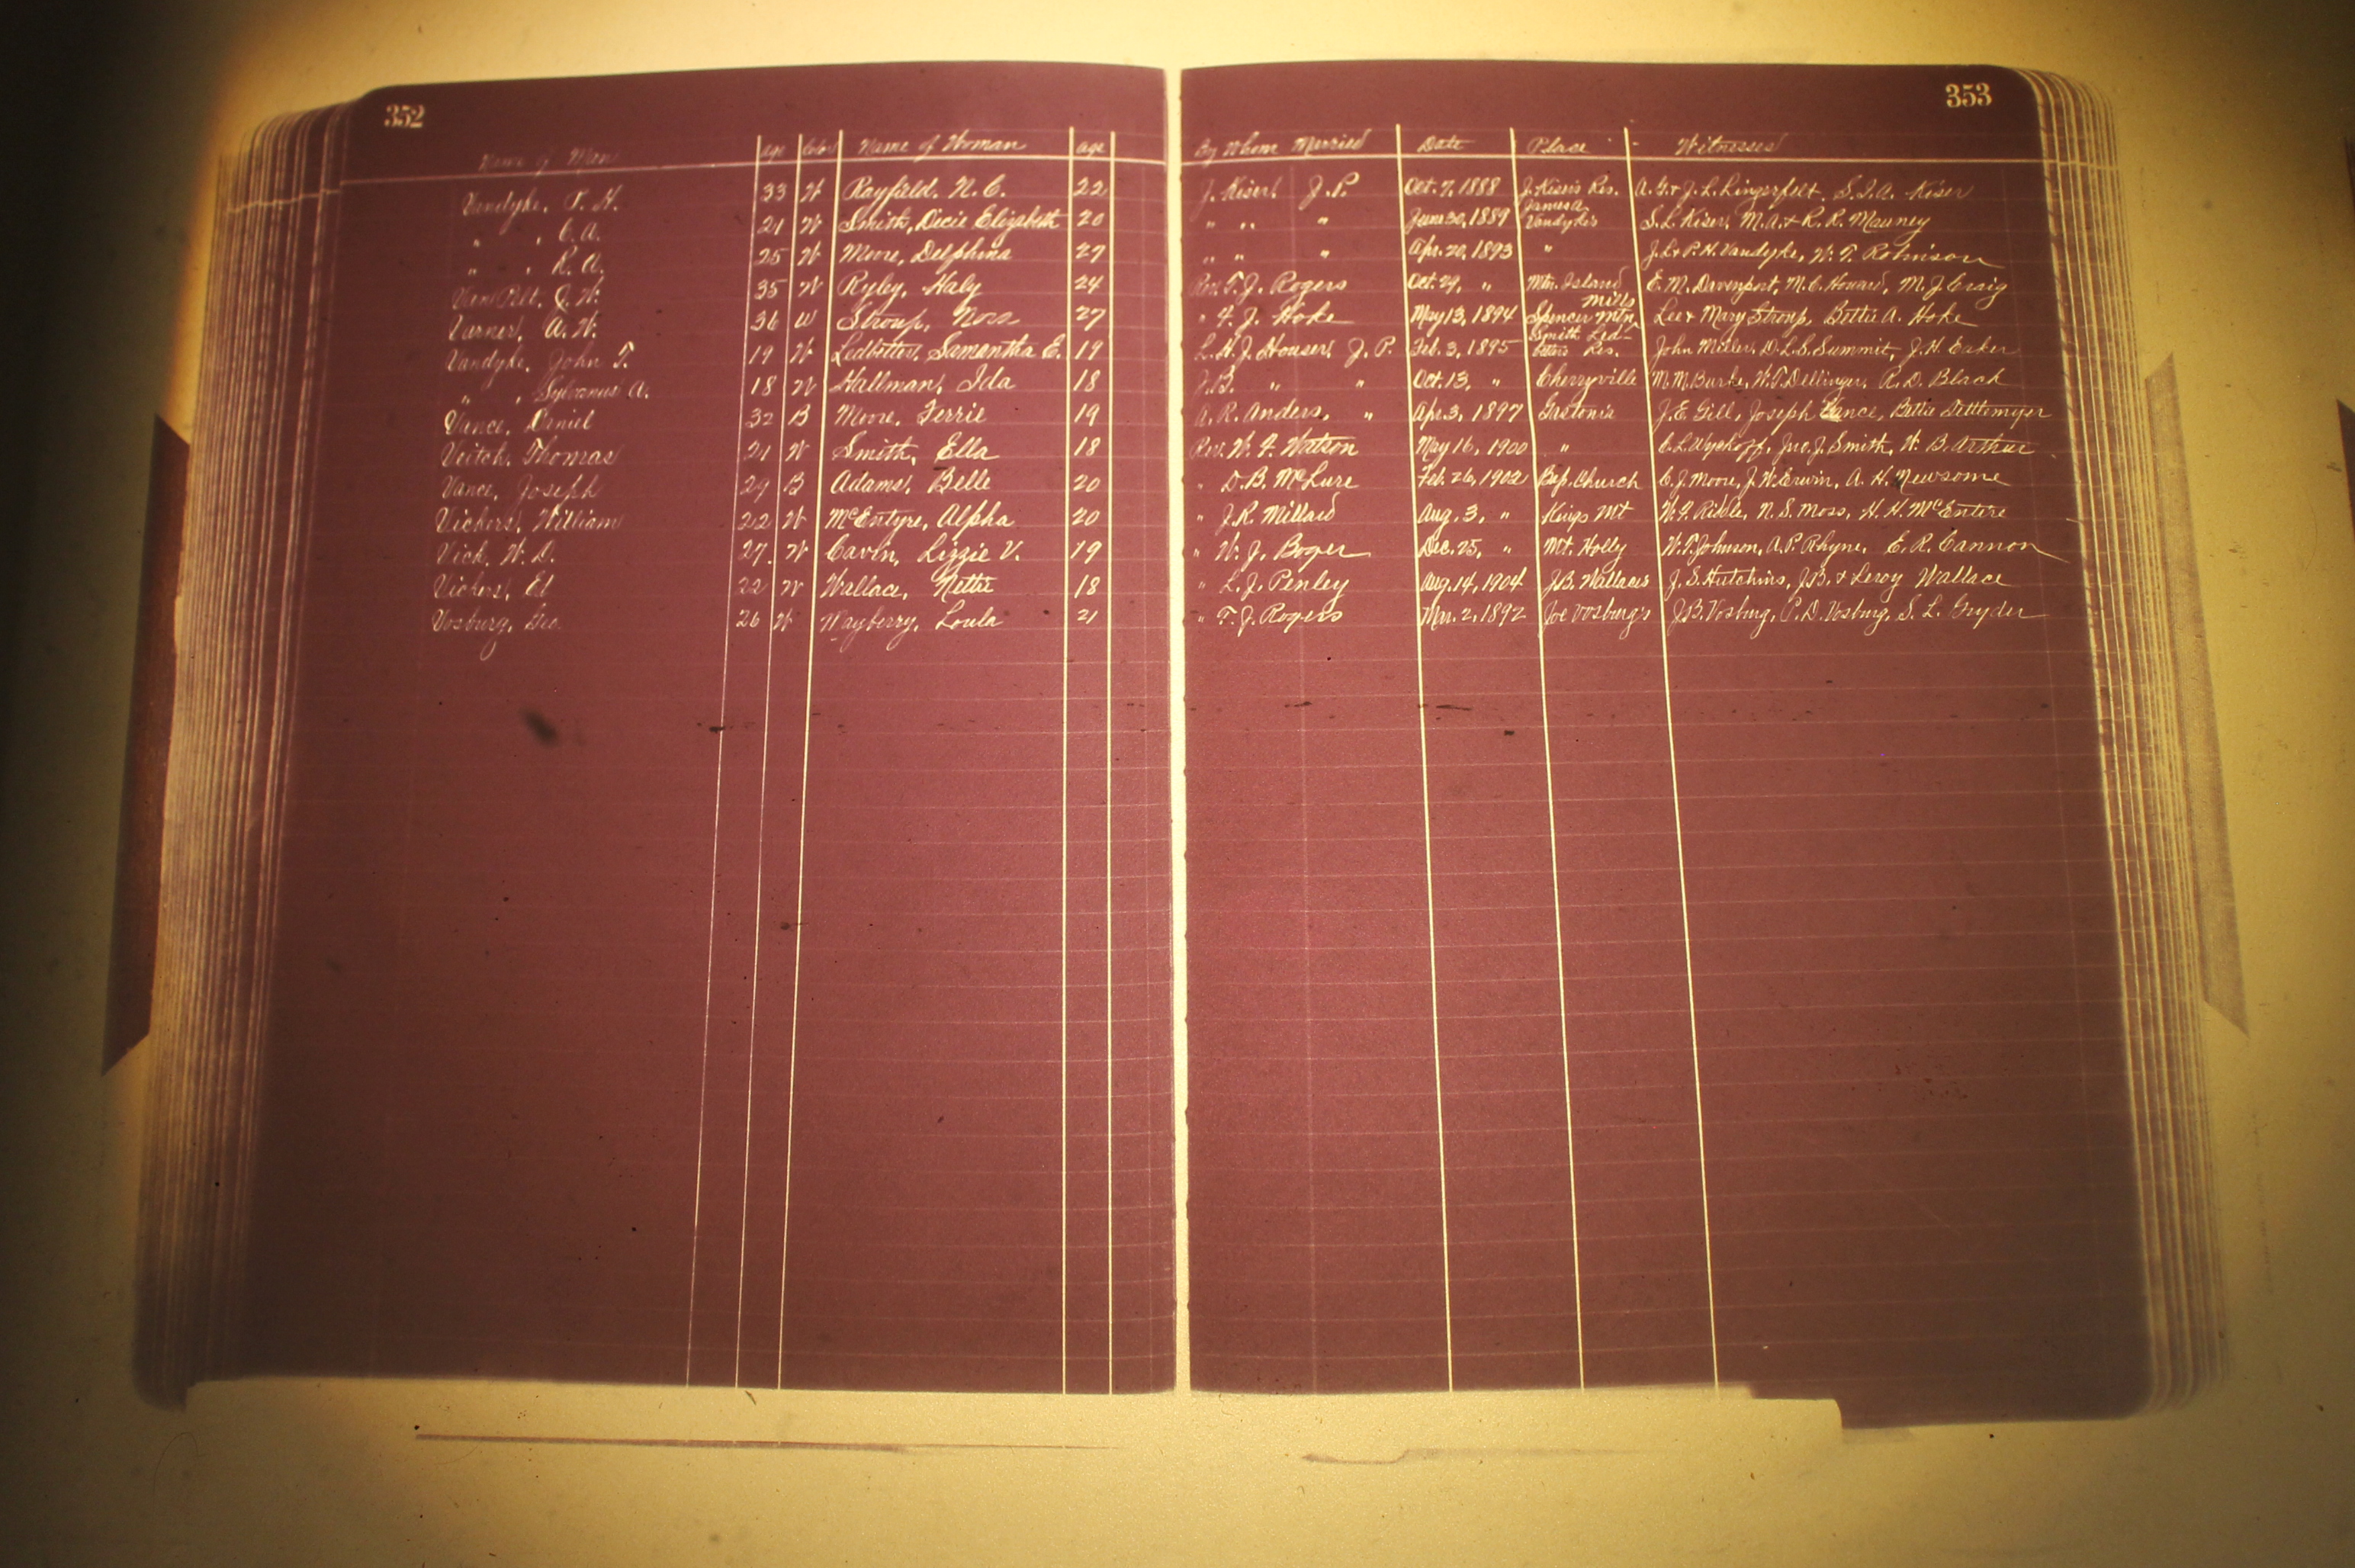 352
353
Name of Man age Color Name of Woman age By Whom Married Date Place Witnesses
Vandyke, T. H. 33 W Rayfield, N. C. 22 J. Kiser, J.P. Oct. 7, 1888 J. Kiser's Res. A. G. & J. L. Lingerfelt, S. I. A. Kiser
" , C. A. 21 W Smith, Dicie Elizabeth 20 " " " June 30, 1889 James A. Vandyke's S. L. Kiser, M. A. & R. R. Mauney
" , R. A. 25 W Moore, Delphina 27 " " " Apr. 20, 1893 " J. L. & P. H. Vandyke, W. T. Robinson
Van Pelt, J. W. 35 W Ryley, Haly 24 Rev. T. J. Rogers Oct. 29, " Mtn. Island Mills E. M. Davenport, M. C. Howard, M. J. Craig
Varner, A. W. 36 W Stroup, Nora 27 " F. J. Hoke May 13, 1894 Spencer Mtn. Lee & Mary Stroup, Bettie A. Hoke
Vandyke, John F. 19 W Ledbetter, Samantha E. 19 L. H. J. Houser, J. P. Feb. 3, 1895 Smith Led-betters Res. John Miller, D. L. S. Summit, J. H. Eaker
" , Sylvanus A. 18 W Hallman, Ida 18 J. B. " " Oct. 13, " Cherryville M. M. Burke, W. T. Dellinger, R. D. Black
Vance, Daniel 32 B Moore, Ferrie 19 A. R. Anders, " Apr. 3, 1897 Gastonia J. E. Gill, Joseph Vance, Bettie
Veitch, Thomas 21 W Smith, Ella 18 Rev. W. F. Watson May 16, 1900 " C. L. Wyckoff, Jno. J. Smith, W. B. Arthur
Vance, Joseph 29 B Adams, Belle 20 " D. B. McLure Feb. 26, 1902 Bap. Church C. J. Moore, J. W. Erwin, A. H. Newsome
Vickers, William 22 W McEntyre, Alpha 20 " J. R. Millard Aug. 3, " Kings Mt W. F. Riddle, N. S. Moss, H. H. McEntire
Vick, W. D. 27 W Cavin, Lizzie V. 19 " W. J. Boger Dec. 25, " Mt. Holly W. T. Johnson, A. P. Rhyne, E. R. Cannon
Vickers, Ed 22 W Wallace, Nettie 18 " L. J. Penley Aug. 14, 1904 J. B. Wallaces J. S. Hutchins, J. B. & Leroy Wallace
Vosburg, Geo. 26 W Mayberry, Loula 21 " T. J. Rogers Mar. 2, 1892 Joe Vosburg's J. B. Vosburg, P. D. Vosburg, S. L. Gryder